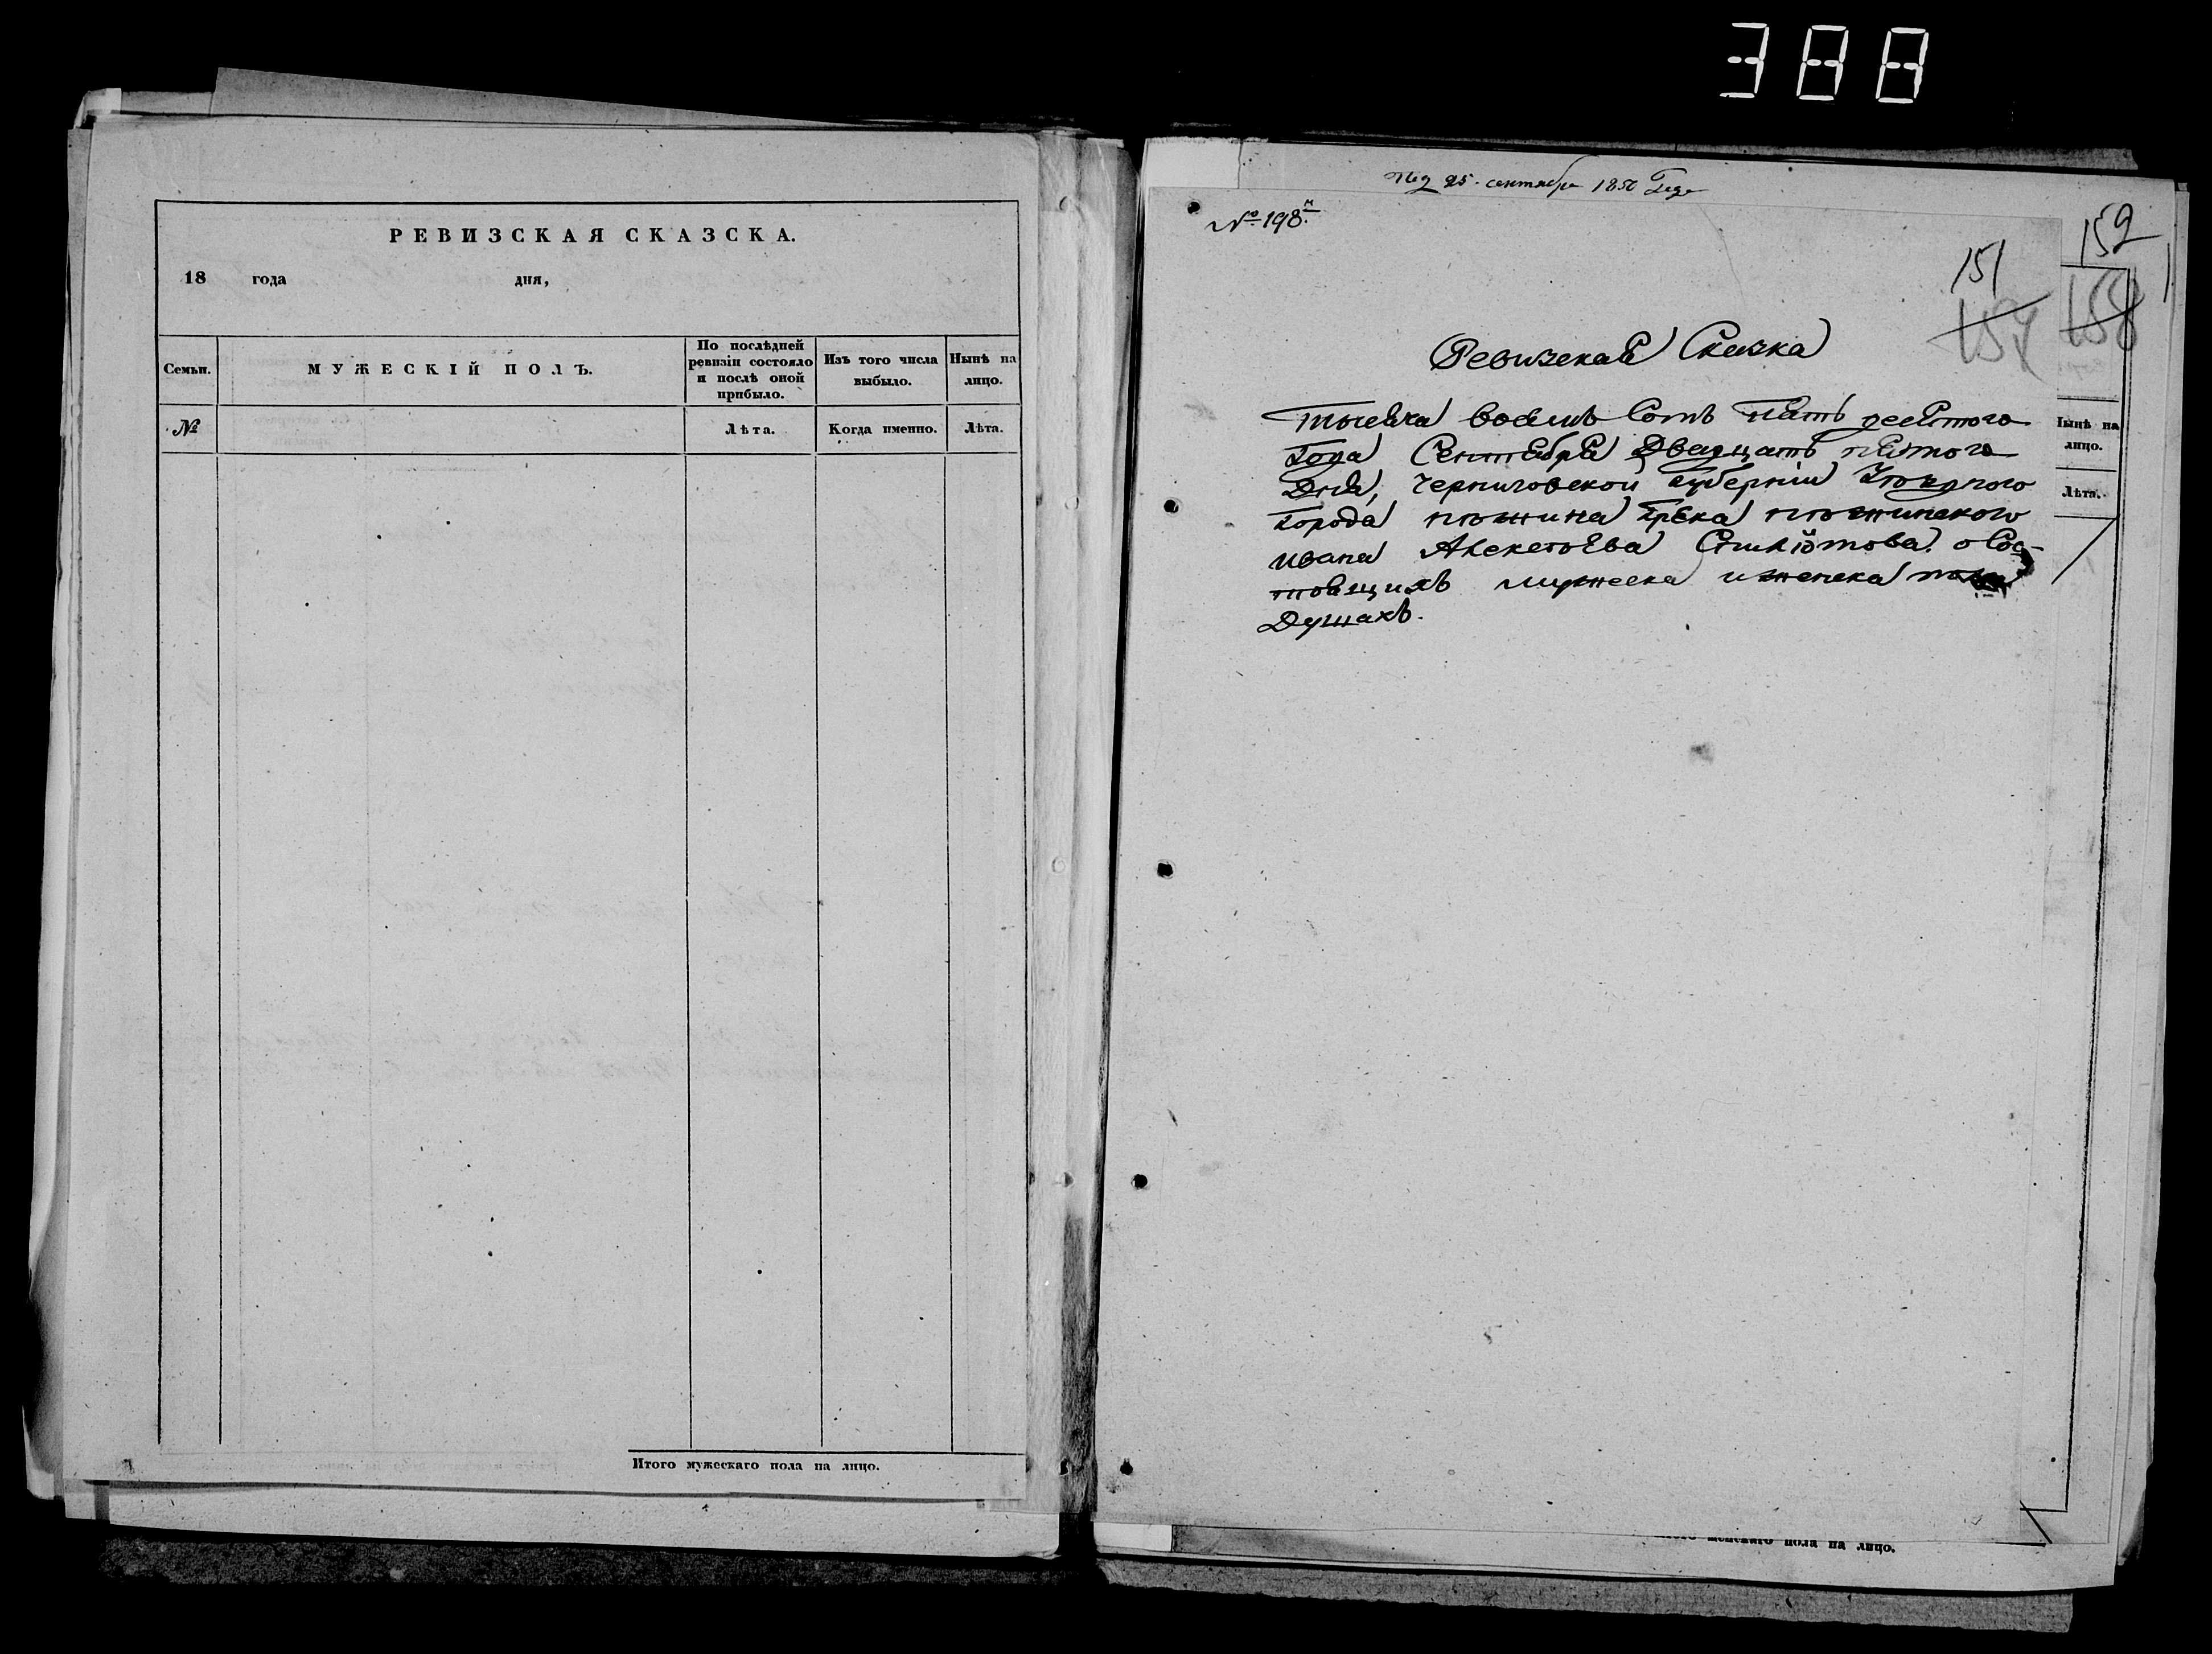 388
РЕВИЗСКАЯ СКАЗСКА.
18 года дня,
Семьи.
МУЖЕСКІЙ ПОЛЪ.
По послѣдней
ревизіи состояло
и послѣ оной
прибыло.
Изъ того числа
выбыло.
Нынѣ на
лицо.
№
Лѣта.
Когда именно.
Лѣта.
Итого мужескаго пола на лицо.
25. сентября 1850 Года
№ 198.
151
152
157
158
Ревизская Сказка
Тысеча восемъ Сотъ пать десятого
Года Сентебря Двадцать пятого
Дня, Черниговской губерніи
города нѣжина грека нѣжинского
ивана о Сос-
тоящихъ мужеска и женска пола
Душахъ.
Нынѣ на
лицо.
Лѣта.
пола на лицо.